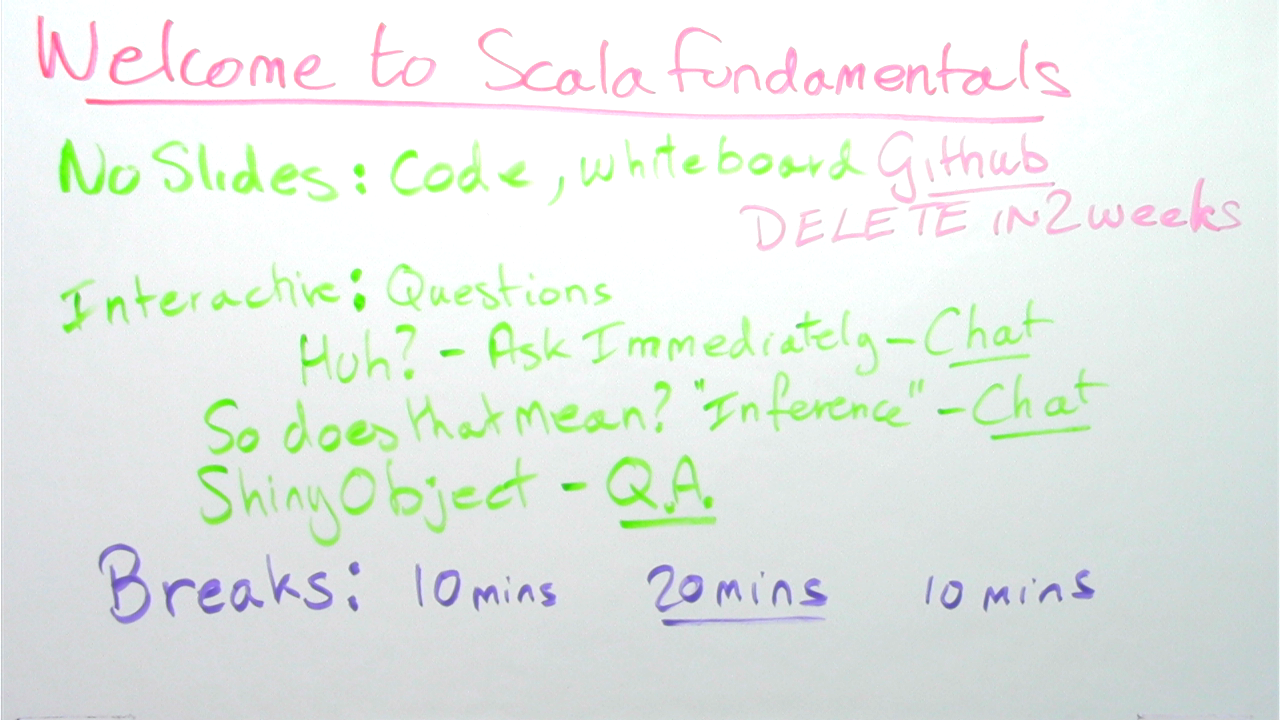 Welcome to Scala fundamentals
No Slides: Code, whiteboard Github
DELETE IN 2 weeks
Interactive: Questions
Huh? - Ask Immediately - Chat
So does that mean? "Inference" - Chat
Shiny Object - Q.A.
Breaks: 10 mins 20 mins 10 mins